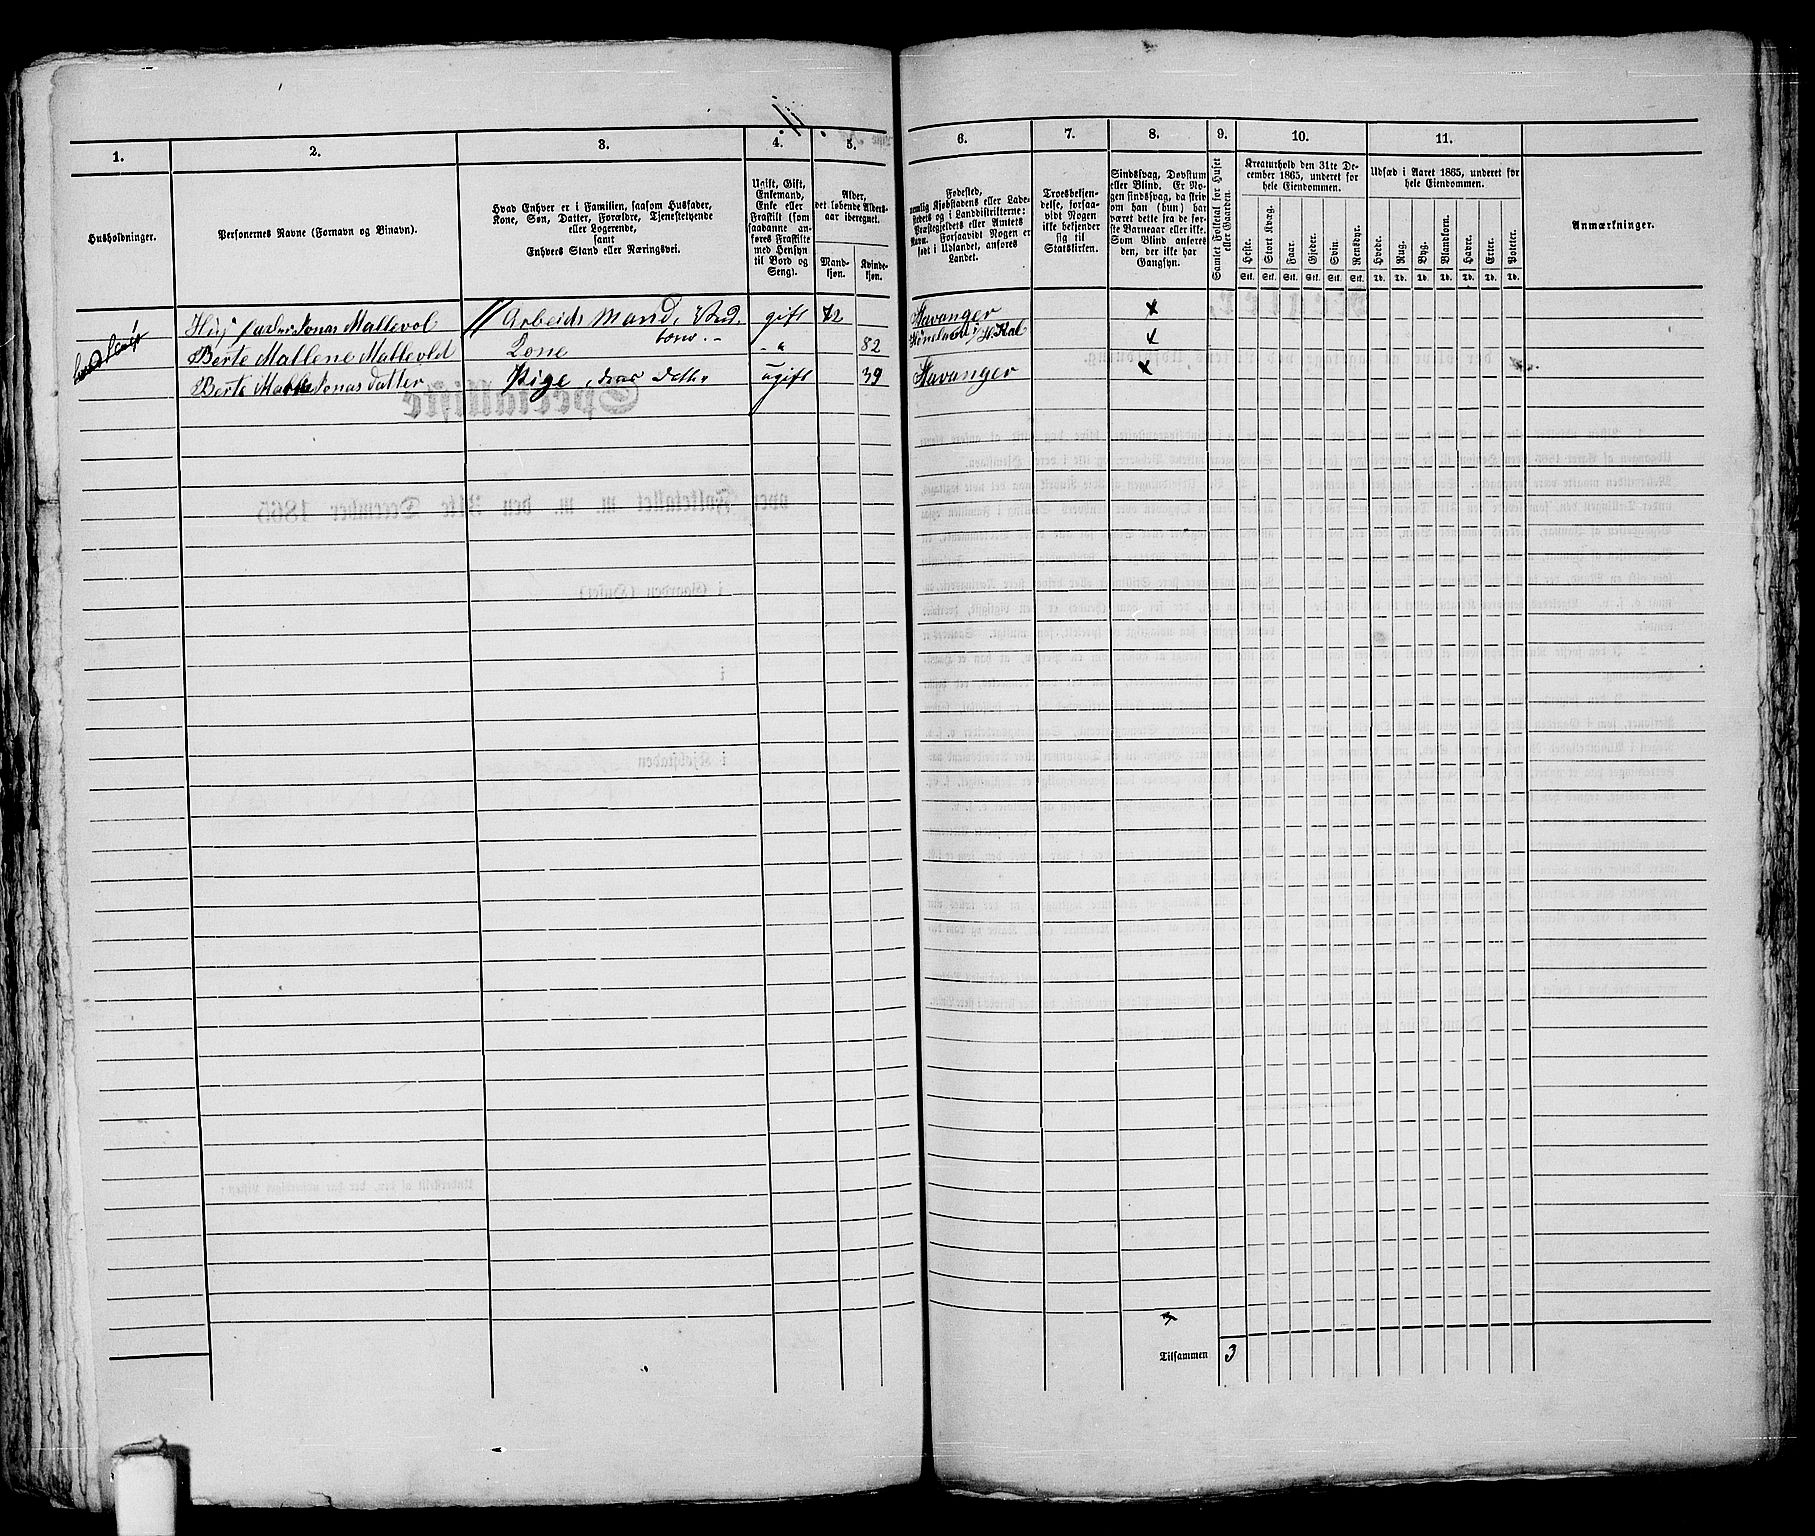 11.
1. 2. 3. 4. 5. 6. 7. 8. 9. 10. 11.
Husholdninger.
Personernes Navne (Fornavn og Tilnavn).
Hvad Enhver er i Familien, saasom Husfader,
Kone, Søn, Datter, Forældre, Tjenestetyende
eller Logerende,
samt
Enhvers Stand eller Næringsvei.
Ugift, Gift,
Enkemand,
Enke eller
Fraskilt (som
saadanne an-
føres Fraskilte
med Hensyn
til Bord og
Seng).
Alder,
det løbende Alders-
aar iberegnet.
Mand-
kjøn.
Kvinde-
kjøn.
Fødested,
nemlig Kjøbstadens eller Lade-
stedets og i Landdistrikterne:
Præstegjeldets eller Amtets
Navn. Forsaavidt Nogen er
født i Udlandet, anføres
Landet.
Troesbekjen-
delse, forsaa-
vidt Nogen
ikke bekjender
sig til
Statskirken.
Sindssvag, Døvstum
eller Blind. Er No-
gen sindssvag, da skriv
om han (hun) har
været dette fra de før-
ste Barneaar eller ikke.
Som Blind anføres
den, der ikke har
Gangsyn.
Samlet Folketal for Huset
eller Gaarden.
Kreaturhold den 31te De-
cember 1865, underet for
hele Eiendommen.
Heste. Stort Kvæg. Faar. Gjeder. Svin. Rensdyr.
Stk. Stk. Stk. Stk. Stk. Stk.
Udsæd i Aaret 1865, underet for
hele Eiendommen.
Hvede. Rug. Byg. Blandkorn. Havre. Erter. Poteter.
Td. Td. Td. Td. Td. Td. Td.
Anmærkninger.
Jonas Mallevol Arbeids Mand, gift 72 Stavanger x
Berte Mallene Mallevold Kone - " 82 x
Berte Jonas datter Pige, ugift 39 Stavanger x
Tilsammen 3